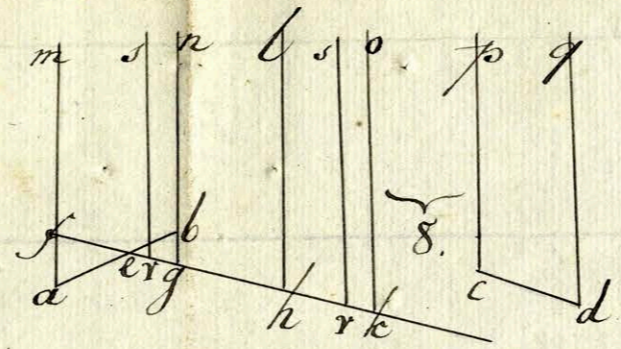 m s n l s o p q
f b 8.
a e r g h r k c d